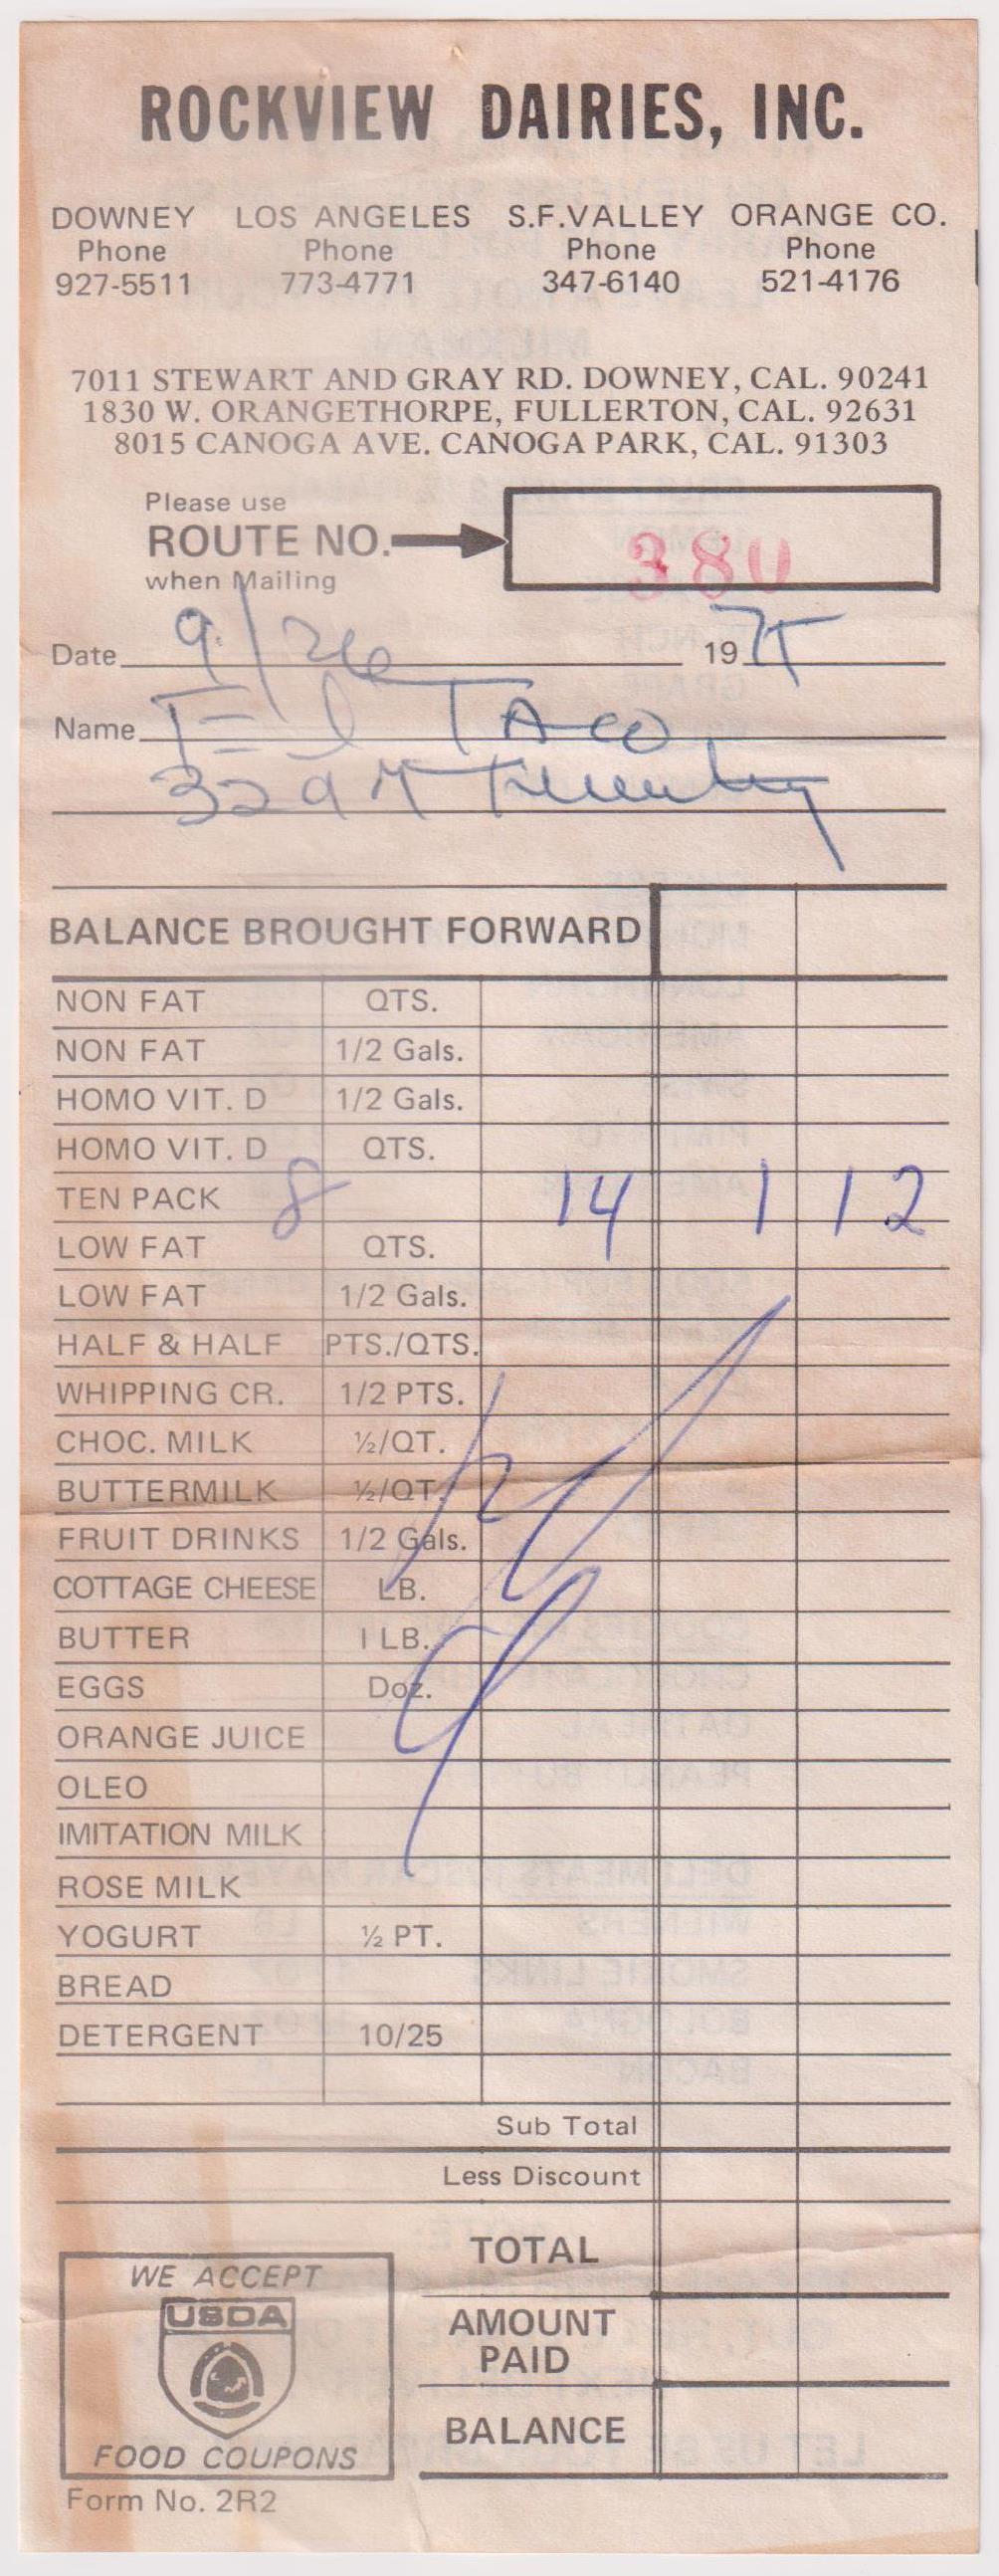 ROCKVIEW DAIRIES, INC.
DOWNEY LOS ANGELES S.F.VALLEY ORANGE CO.
Phone Phone Phone Phone
927-5511 773-4771 347-6140 521-4176
7011 STEWART AND GRAY RD. DOWNEY, CAL. 90241
1830 W. ORANGETHORPE, FULLERTON, CAL. 92631
8015 CANOGA AVE. CANOGA PARK, CAL. 91303
Please use
ROUTE NO. 380
when Mailing
Date 9/26 1975
Name El TACO
329
BALANCE BROUGHT FORWARD
NON FAT QTS.
NON FAT 1/2 Gals.
HOMO VIT. D 1/2 Gals.
HOMO VIT. D QTS.
TEN PACK 8 14 1 12
LOW FAT QTS.
LOW FAT 1/2 Gals.
HALF & HALF PTS./QTS.
WHIPPING CR. 1/2 PTS.
CHOC. MILK ½/QT.
BUTTERMILK ½/QT.
FRUIT DRINKS 1/2 Gals.
COTTAGE CHEESE LB.
BUTTER I LB.
EGGS Doz.
ORANGE JUICE
OLEO
IMITATION MILK
ROSE MILK
YOGURT ½ PT.
BREAD
DETERGENT 10/25
Sub Total
Less Discount
TOTAL
AMOUNT
PAID
BALANCE
WE ACCEPT
USDA
FOOD COUPONS
Form No. 2R2